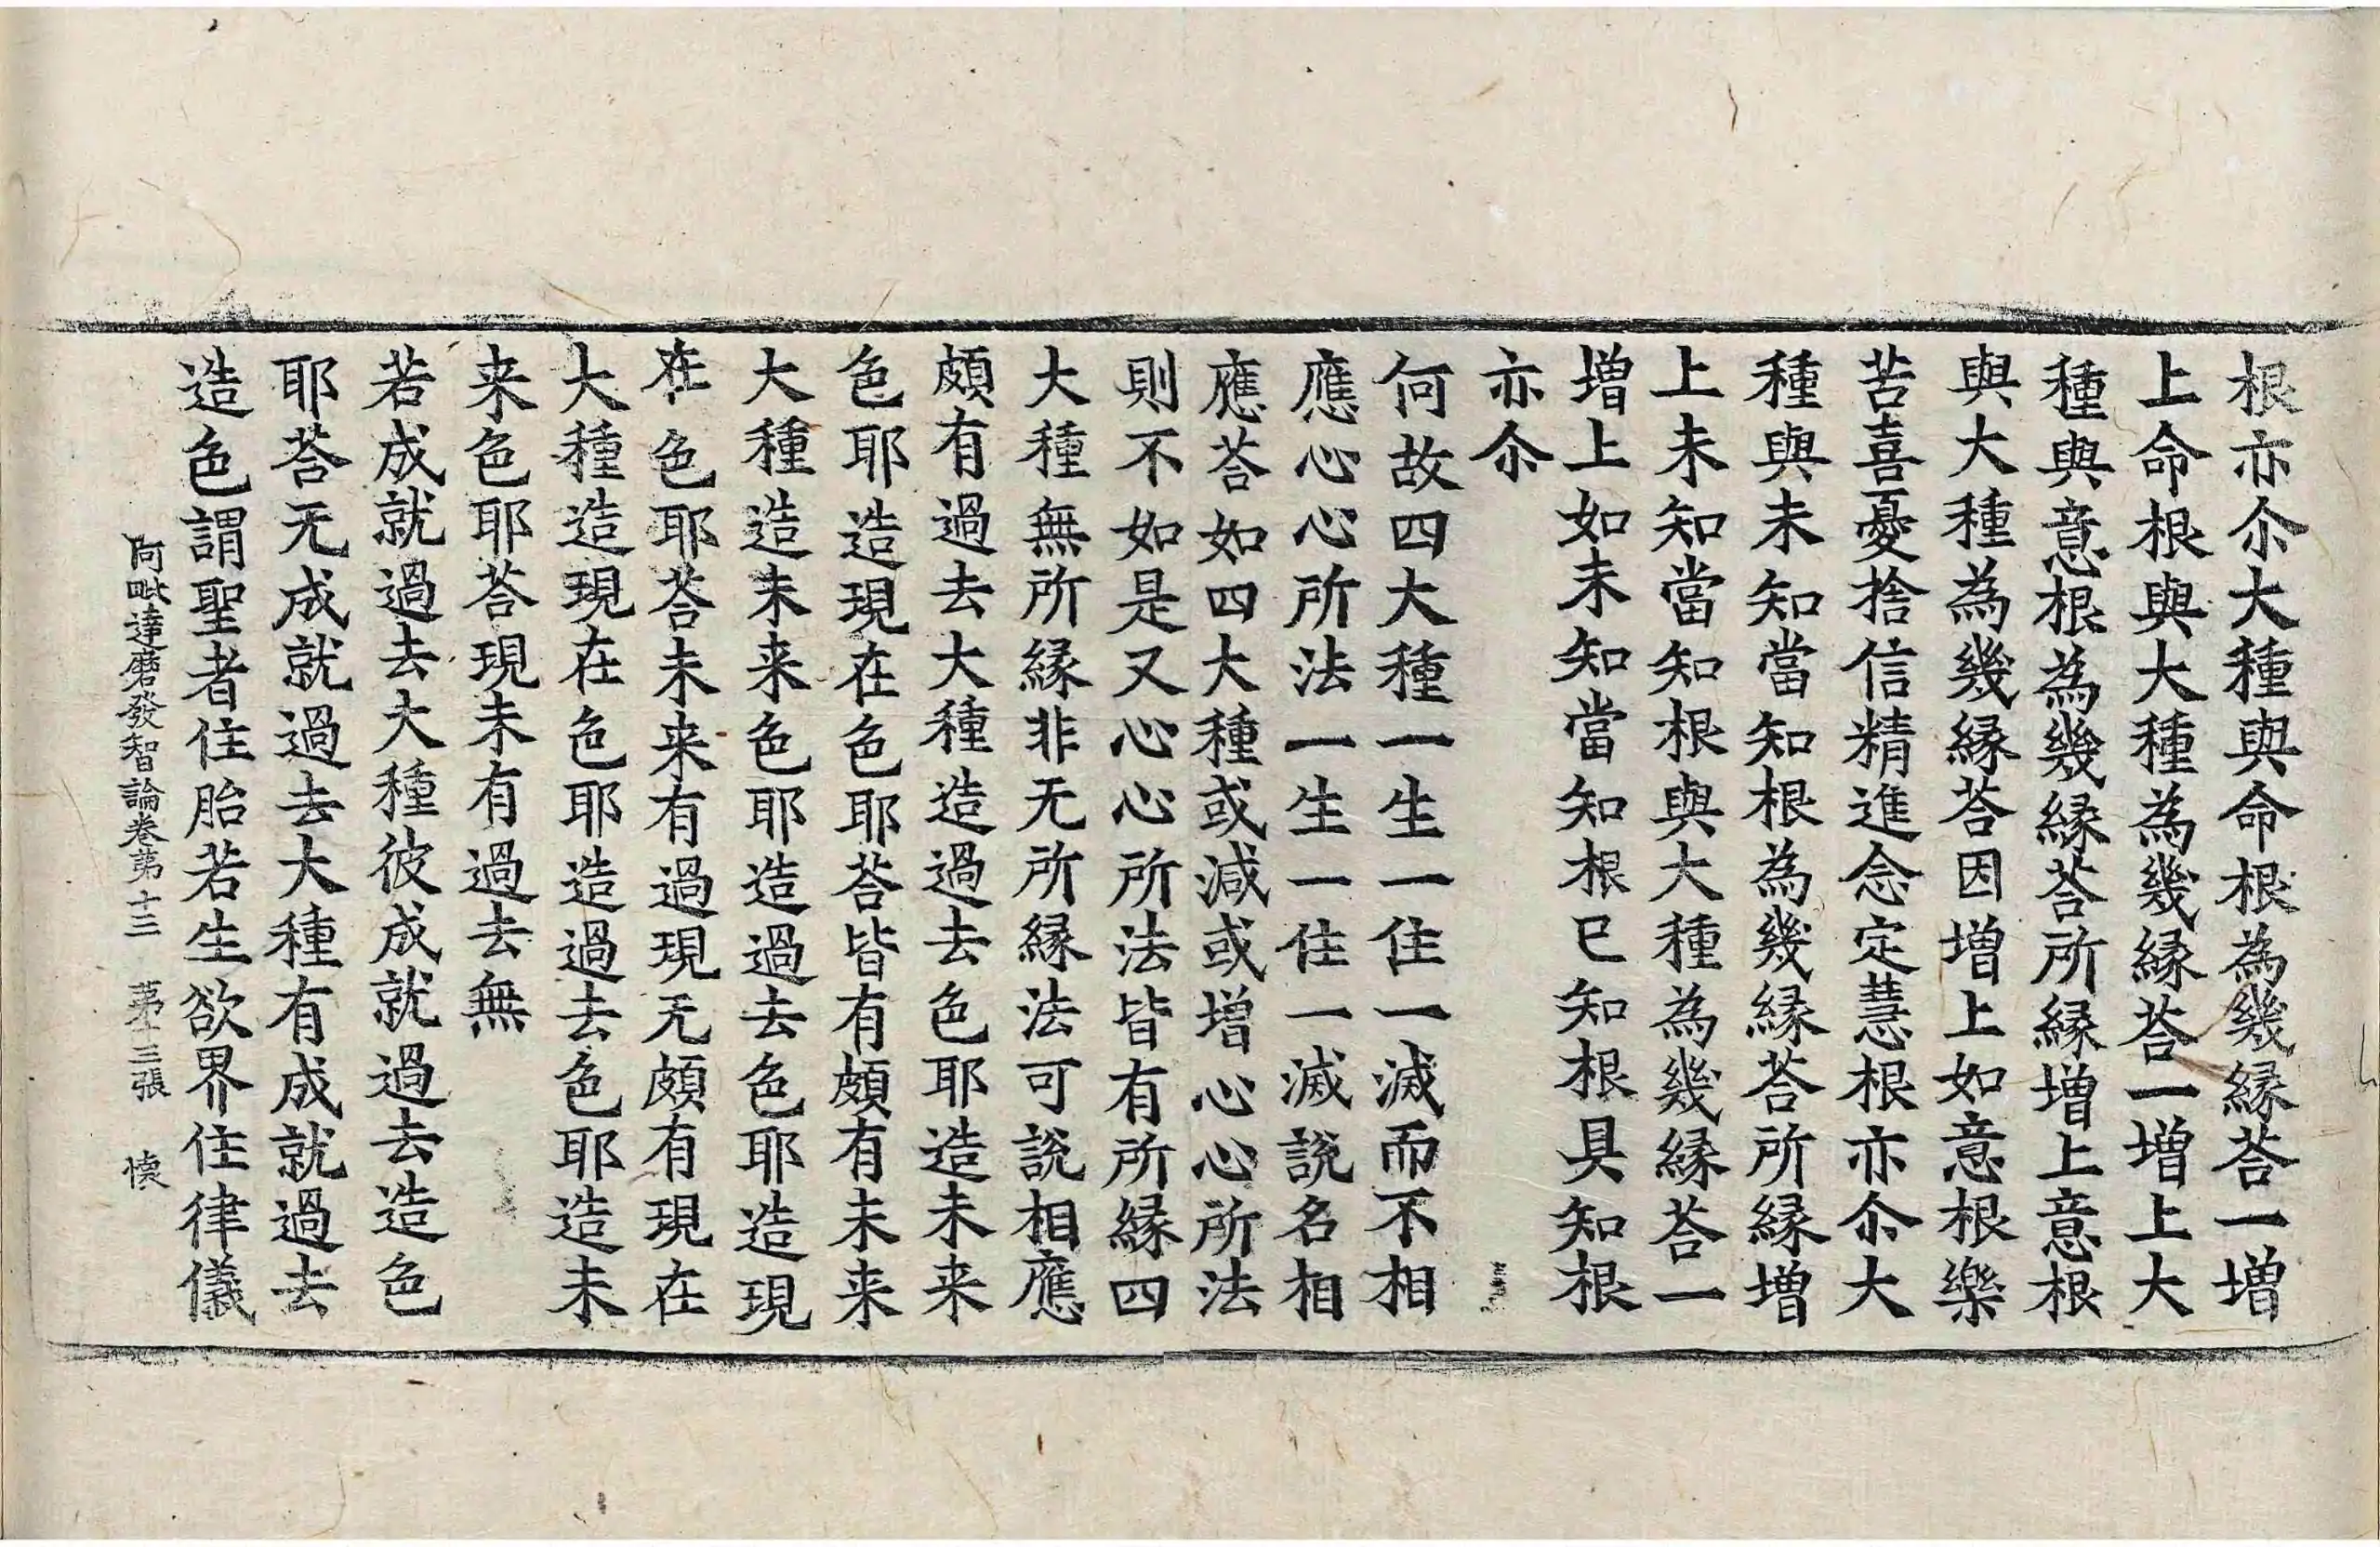 根亦尒大種與命根為幾縁荅一增
上命根與大種為幾縁荅一增上大
種與意根為幾縁荅所縁增上意根
與大種為幾縁荅因增上如意根樂
苦喜憂捨信精進念定慧根亦尒大
種與未知當知根為幾縁荅所縁增
上未知當知根與大種為幾縁荅一
增上如未知當知根已知根具知根
亦尒
何故四大種一生一住一滅而不相
應心心所法一生一住一滅說名相
應荅如四大種或減或增心心所法
則不如是又心心所法皆有所縁四
大種無所縁非无所縁法可說相應
頗有過去大種造過去色耶造未来
色耶造現在色耶荅皆有頗有未来
大種造未来色耶造過去色耶造現
在色耶荅未来有過現无頗有現在
大種造現在色耶造過去色耶造未
来色耶荅現未有過去無
若成就過去大種彼成就過去造色
耶荅无成就過去大種有成就過去
造色謂聖者住胎若生欲界住律儀
阿毗達磨發智論卷第十三 第十三張 懐